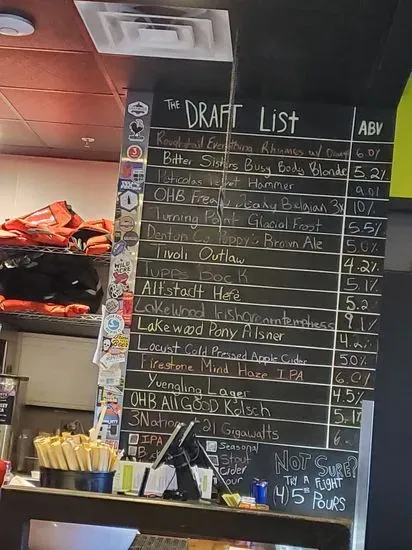 THE DRAFT LIST ABV
Roughtail Everything Rhymes w/ 6.0%
Bitter Sisters Busy Body Blonde 5.2%
Peticolas Velvet Hammer 9.0%
OHB Freaky Deaky Belgian 3x 10%
Turning Point Glacial Frost 5.5%
Denton Co Puppy's Brown Ale 5.0%
Tivoli Outlaw 4.2%
Tupps Bock 5.1%
Altstadt Hefe 5.2
Lakewood Irishcreamtemptress 9.1%
Lakewood Pony Pilsner 4.2%
Locust Cold Pressed Apple Cider 5.0%
Firestone Mind Haze IPA 6.0%
Yuengling Lager 4.5%
OHB All GOOD Kölsch 5.1%
3Nations 21 Gigawatts
IPA
Seasonal
Stout
Cider
Sour
NOT SURE?
TRY A FLIGHT
(4) 5oz POURS